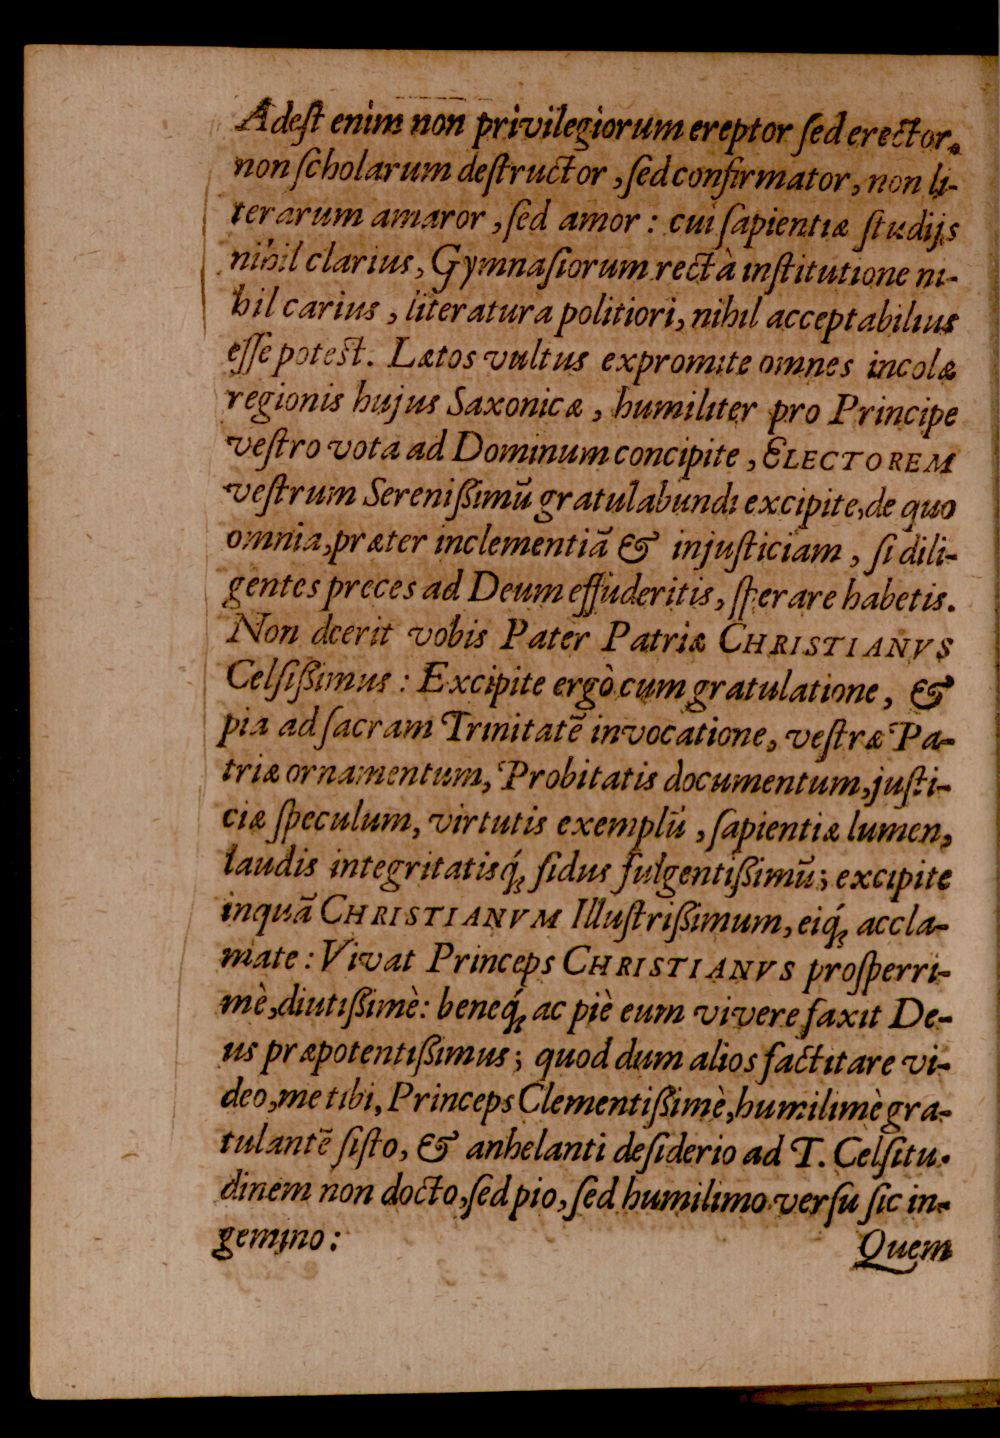 Adeſt enim non privilegiorum ereptor ſed erector.
non ſcholarum deſtructor, ſed confirmator, non li-
terarum amaror, ſed amor: cui ſapientiæ ſtudijs
nihil clarius, Gymnaſiorum rectà inſtitutione ni-
hil carius, literatura politiori, nihil acceptabilius
eſſe potest. Lætos vultus expromite omnes incolæ
regionis hujus Saxonicæ, humiliter pro Principe
veſtro vota ad Dominum concipite, ELECTOREM
veſtrum Sereniſſimū gratulabundi excipite, de quo
omnia, præter inclementiā & injuſticiam, ſi dili-
gentes preces ad Deum effuderitis, ſperare habetis.
Non deerit vobis Pater Patriæ CHRISTIANVS
Celſiſſimus: Excipite ergò cum gratulatione, &
pia ad ſacram Trinitatē invocatione, veſtræ Pa-
triæ ornamentum, Probitatis documentum, juſti-
ciæ ſpeculum, virtutis exemplū, ſapientiæ lumen,
laudis integritatisq́; ſidus fulgentiſſimū; excipite
inquā CHRISTIANVM Illuſtriſſimum, eiq́; accla-
mate: Vivat Princeps CHRISTIANVS proſperri-
mè, diutiſſimè: beneq́; ac piè eum vivere faxit De-
us præpotentiſſimus; quod dum alios factitare vi-
deo, me tibi, Princeps Clementiſſimè, humilimè gra-
tulantē ſiſto, & anhelanti deſiderio ad T. Celſitu-
dinem non docto, ſed pio, ſed humilimo verſu ſic in-
gemino:
Quem